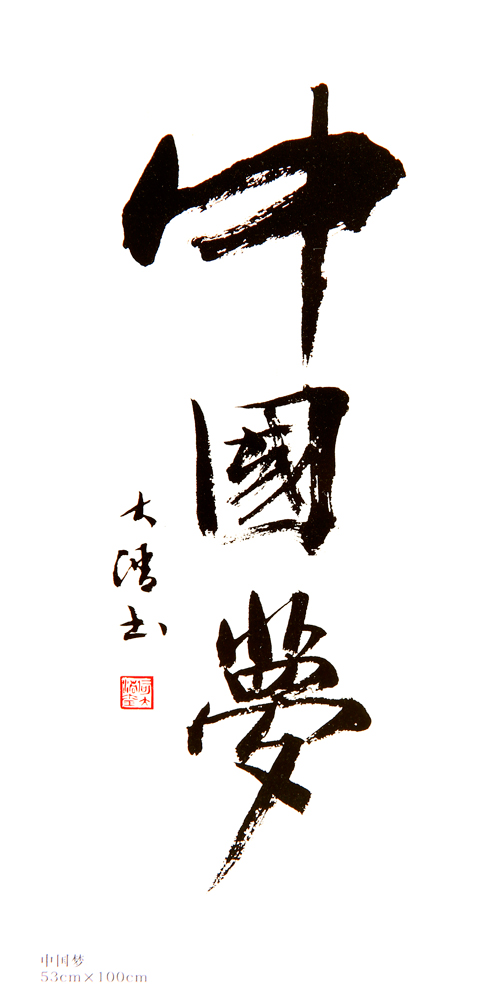 中國夢
大清书
中国梦
53cm×100cm